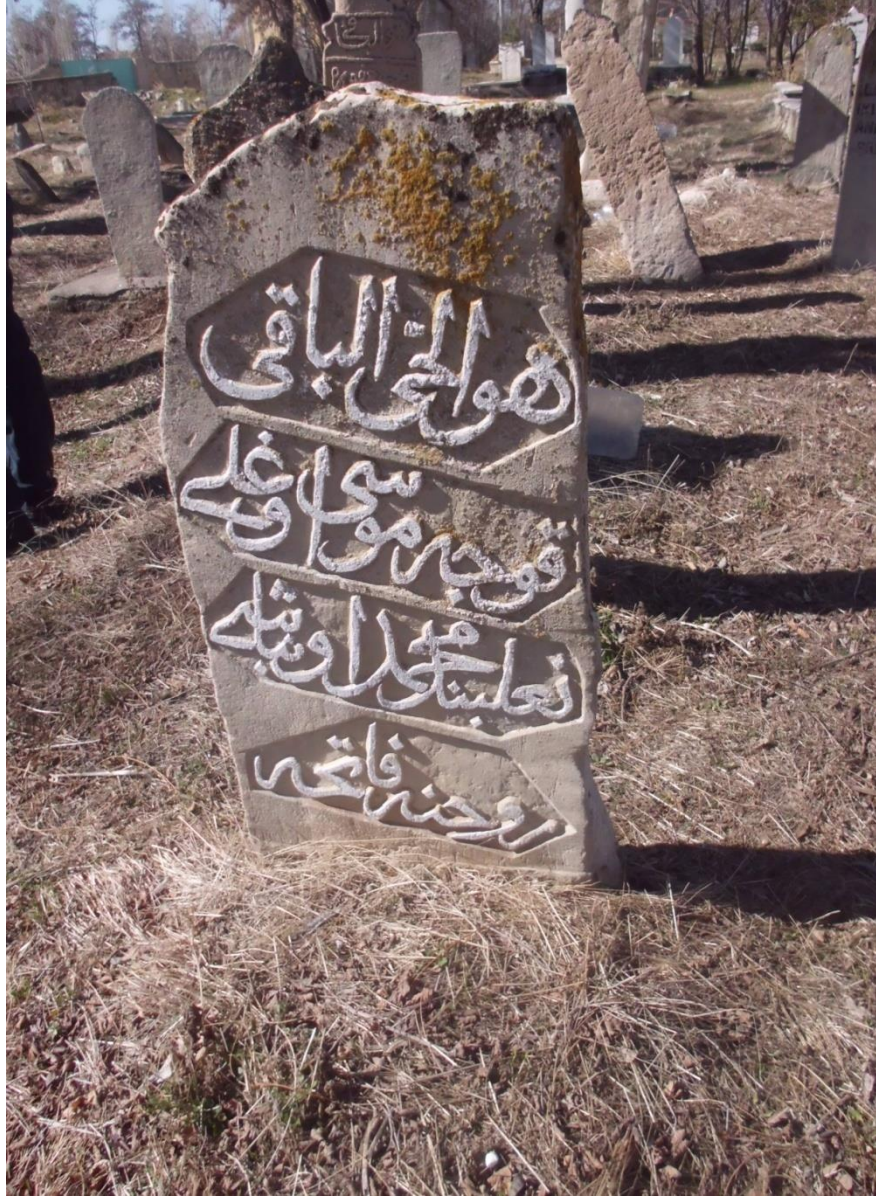 هو الحي الباقي
قوجه موسى اوغلي
نعلبند محمد اونباشي
روحنه فاتحه